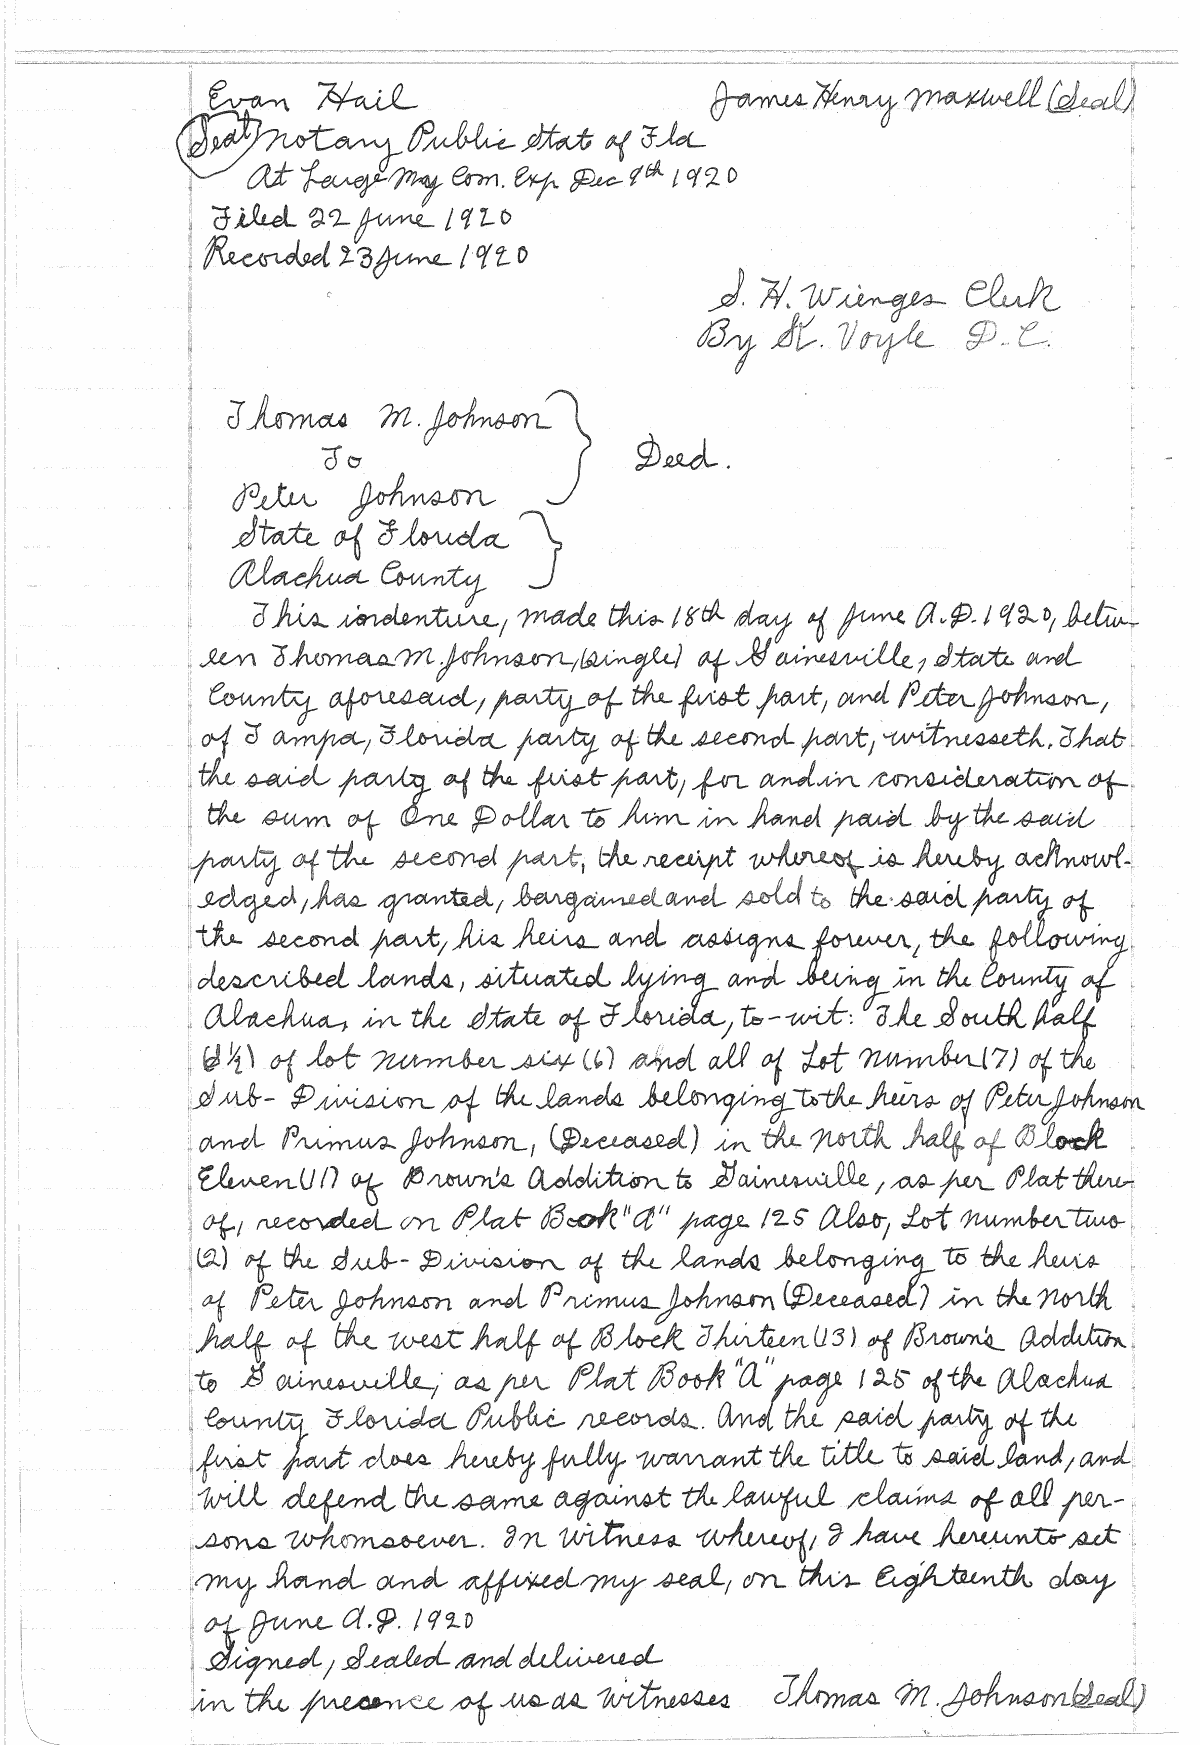 Evan Hail James Henry Maxwell (Seal)
(Seal) Notary Public Stat of Fla
At Large My Com. Exp Dec 9th 1920
Filed 22 June 1920
Recorded 23 June 1920
S. H. Wienges Clerk
By St. Voyle D.C.
Thomas M. Johnson
To Deed.
Peter Johnson
State of Florida
Alachua County
This indenture, made this 18th day of June A.D. 1920, betw-
een Thomas M. Johnson, (single) of Gainesville, State and
County aforesaid, party of the first part, and Peter Johnson,
of Tampa, Florida party of the second part, witnesseth. That
the said party of the first part, for and in consideration of
the sum of One Dollar to him in hand paid by the said
party of the second part, the receipt whereof is hereby acknowl-
edged, has granted, bargained and sold to the said party of
the second part, his heirs and assigns forever, the following
described lands, situated lying and being in the County of
Alachua, in the State of Florida, to-wit: The South half
(S½) of lot number six (6) and all of Lot Number (7) of the
Sub-Division of the lands belonging to the heirs of Peter Johnson
and Primus Johnson, (Deceased) in the north half of Block
Eleven (11) of Brown's Addition to Gainesville, as per Plat there-
of, recorded on Plat Book "A" page 125 Also, Lot number two
(2) of the Sub-Division of the lands belonging to the heirs
of Peter Johnson and Primus Johnson (Deceased) in the North
half of the west half of Block Thirteen (13) of Brown's Addition
to Gainesville, as per Plat Book "A" page 125 of the Alachua
County Florida Public records. And the said party of the
first part does hereby fully warrant the title to said land, and
will defend the same against the lawful claims of all per-
sons whomsoever. In Witness whereof, I have hereunto set
my hand and affixed my seal, on this Eighteenth day
of June A.D. 1920
Signed, Sealed and delivered
in the precence of us as witnesses Thomas M. Johnson (Seal)